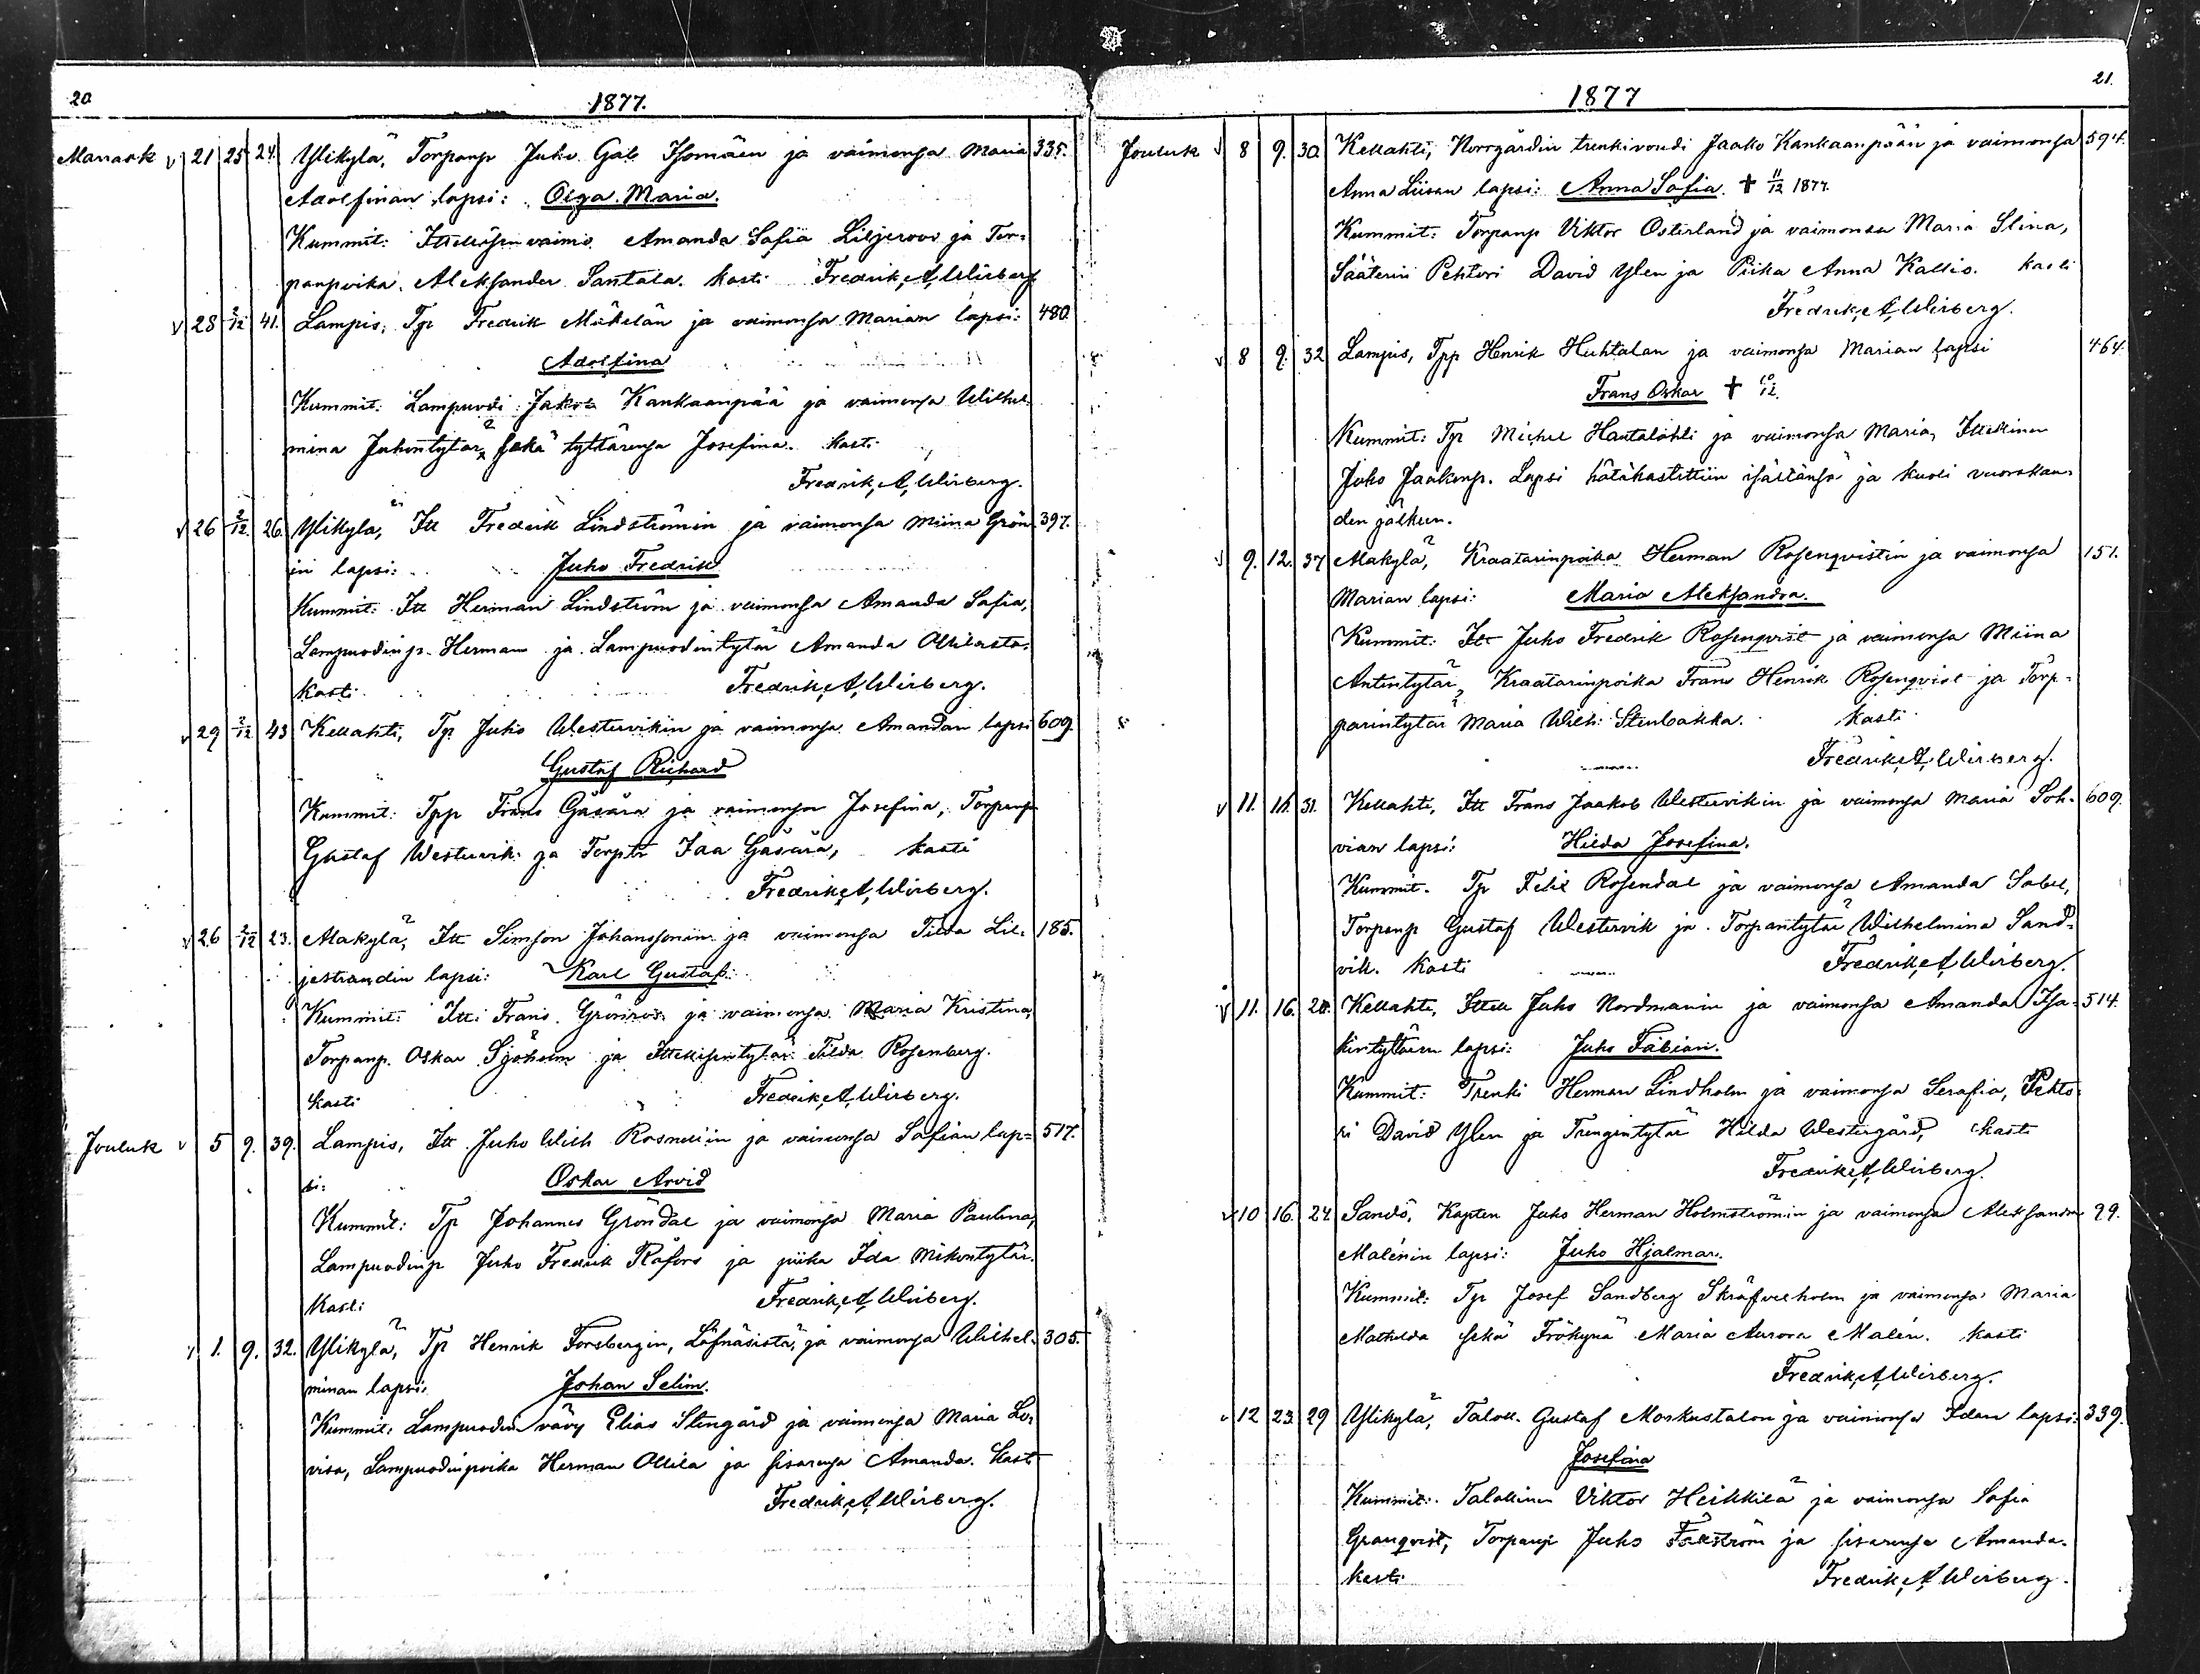 20
1877.
Marrask v 21 25 24. Ylikylä, Torpanp Juho Gab. Isomäen ja vaimonsa Maria 335.
Adolfinan lapsi: Olga Maria.
Kummit: Ittellisen vaimo Amanda Sofia Liljeroos ja Tor-
panpoika Aleksander Santala. kasti Fredrik A. Wirberg
v 28 2/12 41. Lampis, Tp Fredrik Mäkelän ja vaimonsa Marian lapsi: 480.
Adolfina
Kummit: Lampuodi Jakob Kankaanpää ja vaimonsa Wilhel-
mina Juhontytär, sekä tyttärensä Josefina. kasti
Fredrik A. Wirberg.
v 26 2/12 26. Ylikylä, Itt Fredrik Lindströmin ja vaimonsa Miina Grön- 397.
in lapsi: Juho Fredrik
Kummit: Itt Herman Lindström ja vaimonsa Amanda Sofia,
Lampuodinp. Herman ja Lampuodintytär Amanda Ollilasta.
kasti Fredrik A. Wirberg.
v 29 2/12 43 Kellahti, Tp. Juho Westervikin ja vaimonsa Amandan lapsi 609.
Gustaf Richard
Kummit: Tpp Frans Gäsära ja vaimonsa Josefina, Torpanp
Gustaf Westervik ja Torptr Gäsära, kasti
Fredrik A. Wirberg.
v 26 2/12 23. Alakylä, Itt Simson Johanssonin ja vaimonsa Tilda Lil- 185.
jestrandin lapsi: Karl Gustaf.
Kummit: Itt: Frans Grönroos ja vaimonsa Maria Kristina,
Torpanp. Oskar Sjöholm ja Ittellisentytär Tilda Rosenberg.
kasti Fredrik A. Wirberg.
Jouluk v 5 9. 39. Lampis, Itt Juho Wilh Rosnellin ja vaimonsa Sofian lap- 517.
si: Oskar Arvid
Kummit: Tp Johannes Gröndal ja vaimonsa Maria Paulina,
Lampuodinp Juho Fredrik Råfors ja piika Ida Mikontytär.
Kasti Fredrik A. Wirberg.
v 1. 9. 32. Ylikylä, Tp Henrik Forsbergin, Löfnäsistä, ja vaimonsa Wilhel- 305.
minan lapsi: Johan Selim.
Kummit: Lampuodin vävy Elias Stengård ja vaimonsa Maria Lo-
visa, Lampuodinpoika Herman Ollila ja sisarensa Amanda. kasti
Fredrik A. Wirberg.
21.
1877
Jouluk v 8 9. 30. Kellahti, Norrgårdin trenkivoudi Jaako Kankaanpään ja vaimonsa 594.
Anna Liisan lapsi: Anna Sofia. † 11/12 1877.
Kummit: Torpanp Viktor Österland ja vaimonsa Maria Stina,
Sääterin Pehtori David Ylen ja Piika Anna Kallio. kasti
Fredrik A. Wirberg.
v 8 9. 32 Lampis, Tpp Henrik Huhtalan ja vaimonsa Marian lapsi 464.
Frans Oskar †
Kummit: Tp Michel Hautalahti ja vaimonsa Maria, Ittellinen
Juho Jaakonp. Lapsi hätäkastettiin isältänsä ja kuoli vuorokau-
den jälkeen.
v 9. 12. 37 Alakylä, Kraatarinpoika Herman Rosenqvistin ja vaimonsa 151.
Marian lapsi: Maria Aleksandra.
Kummit: Itt Juho Fredrik Rosenqvist ja vaimonsa Miina
Antintytär, Kraatarinpoika Frans Henrik Rosenqvist ja Torp-
parintytär Maria Wilh: Stenbakka. kasti
Fredrik A. Wirberg.
v 11. 16. 31. Kellahti, Itt Frans Jaakob Westervikin ja vaimonsa Maria Soh- 609.
vian lapsi: Hilda Josefina.
Kummit. Tp Felix Rosendal ja vaimonsa Amanda Sabel,
Torpanp Gustaf Westervik ja Torpantytär Wilhelmina Sand-
vik. kasti Fredrik A. Wirberg.
v 11. 16. 20. Kellahti, Ittell Juho Nordmanin ja vaimonsa Amanda Isa- 514.
kintyttären lapsi: Juho Fabian.
Kummit: Trenki Herman Lindholm ja vaimonsa Serafia, Pehto-
ri David Ylen ja Trengintytär Hilda Westergård, kasti
Fredrik A. Wirberg.
v 10 16. 24 Sandö, Kapten Juho Herman Holmströmin ja vaimonsa Aleksandra 99.
Malénin lapsi: Juho Hjalmar.
Kummit: Tp Josef Sandberg Skräfvelholm ja vaimonsa Maria
Mathilda sekä Frökynä Maria Aurora Malén. kasti
Fredrik A. Wirberg.
v 12 23. 29 Ylikylä, Taloll. Gustaf Morkustalon ja vaimonsa Idan lapsi: 339.
Josefina
Kummit: Talollinen Viktor Heikkilä ja vaimonsa Sofia
Granqvist, Torpanp Juho ja sisarensa Amanda.
kasti Fredrik A. Wirberg.